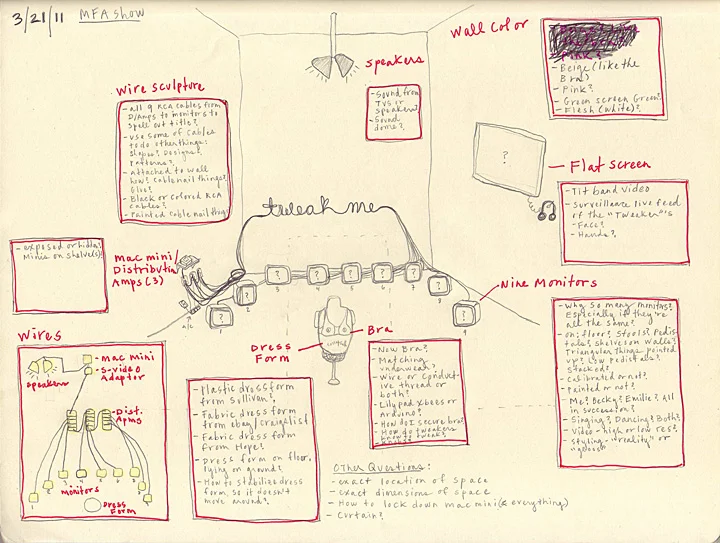 3/21/11 MFA Show
Wall Color
- Beige (like the
Bra)
- Pink?
- Green screen Green?
- Flesh (white)?
Speakers
- Sound from
TVs or
speakers?
- Sound
dome?
Wire sculpture
- all 9 RCA cables from
D/Amps to monitors to
spell out title?
- use some of cables
to do other things:
Shapes? Designs?
Patterns?
- Attached to wall
how? Cable nail things?
Glue?
- Black or colored RCA
cables?
- Painted cable nail thing
?
Flat screen
- Tit band video
- Surveillance live feed
of the "Tweeker"'s
- Face?
- Hands?
tweak me
- exposed or hidden?
Minis on shelve(s)?
mac mini/
Distribution
Amps (3)
a/c
? ? ? ? ? ? ? ? ?
1 2 3 4 5 6 7 8 9
Nine Monitors
- Why so many monitors?
Especially if they're
all the same?
- on: floor? Stools? Pedis
tals? shelves on walls?
Triangular things pointed
up? Low pedistals?
Stacked?
- Calibrated or not?
- Painted or not?
- Me? Becky? Emilie? All
in succession?
- Singing? Dancing? Both?
- Video - high or low res?
- Styling - "reality" or
Dress
Form
Bra
- New Bra?
- Matching
underwear?
- Wire or Conduct
ive thread or
both?
- Lilypad xbees or
Arduino?
- How do I secure bra?
- How do tweakers
know to tweak?
Wires
speakers
- mac mini
- S-video
Adaptor
- Dist.
Amps
1 2 3 4 5 6 7 8 9
monitors
Dress
Form
- Plastic dressform
from Sullivan?
- Fabric dress form
from ebay/craigslist
- Fabric dress form
from Hope?
- Dress form on floor,
lying on ground?
- How to stabilize dress
form, so it doesn't
move around?
Other Questions:
- exact location of space
- exact dimensions of space
- How to lock down mac mini (& everything)
- Curtain?